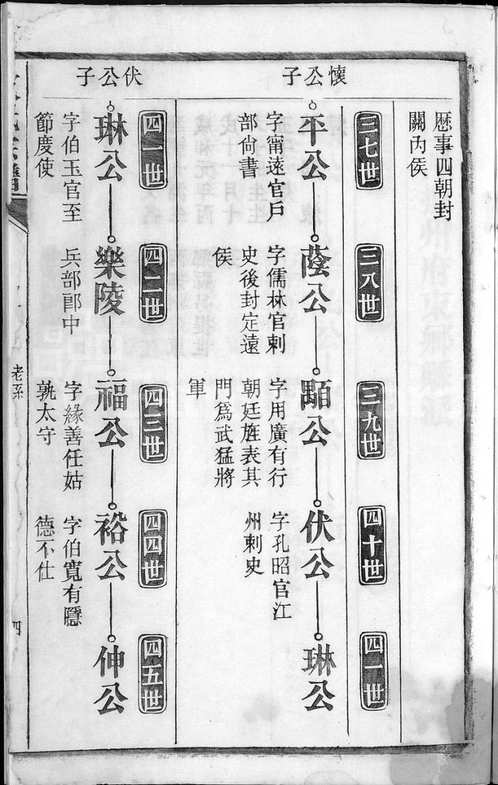 歷事四朝封
關內侯
三七世
三八世
三九世
四十世
四一世
懷公子
平公
蔭公
顯公
伏公
琳公
字甯遠官戶
部尙書
字儒林官刺
史後封定遠
侯
字用廣有行
朝廷旌表其
門爲武猛將
軍
字孔昭官江
州刺史
四一世
四二世
四三世
四四世
四五世
伏公子
琳公
樂陵
福公
裕公
仲公
字伯玉官至
節度使
兵部郎中
字緣善任姑
孰太守
字伯寬有隱
德不仕
老系
四